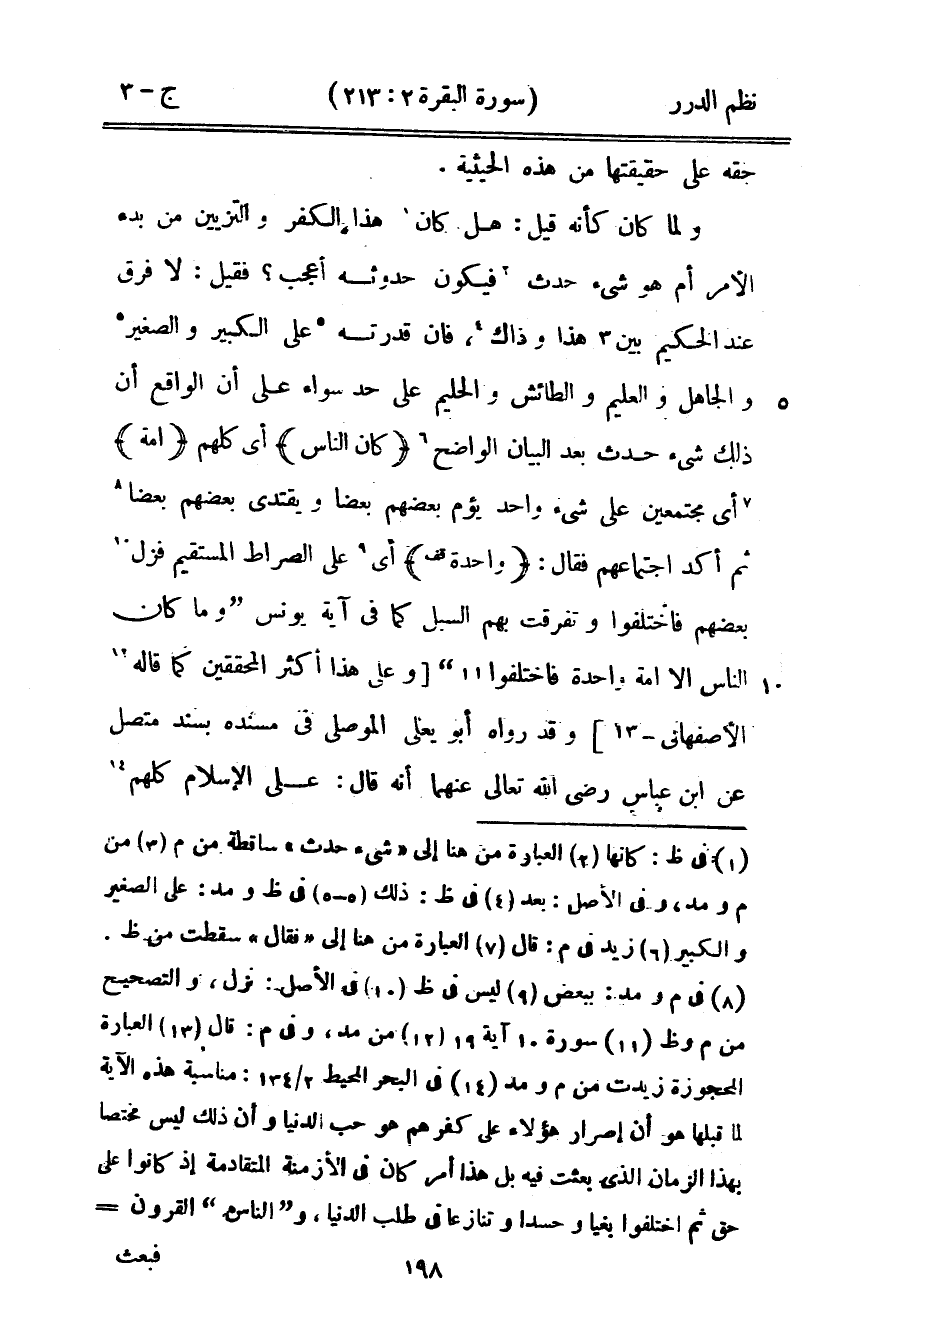 نظم الدرر (سورة البقرة ٢ : ٢١٣) ج – ٣
حقه على حقيقتها من هذه الحيثية .
و لما كان كأنه قيل : هل كان ١ هذا الكفر و التزيين من بدء
الأمر أم هو شىء حدث ٢ فيكون حدوثه أعجب ؟ فقيل : لا فرق
عند الحكيم بين ٣ هذا و ذاك ٤ ، فان قدرته ٥ على الكبير و الصغير ٥
و الجاهل و العليم و الطائش و الحليم على حد سواء على أن الواقع أن ٥
ذلك شىء حدث بعد البيان الواضح ٦ ﴿ كان الناس ﴾ أى كلهم ﴿ امة ﴾
٧ أى مجتمعين على شىء واحد يؤم بعضهم بعضا و يقتدى بعضهم بعضا ٨
ثم أكد اجتماعهم فقال : ﴿ واحدة قف ﴾ أى ٩ على الصراط المستقيم فزل ١٠
بعضهم فاختلفوا و تفرقت بهم السبل كما فى آية يونس ”و ما كان
الناس الا امة واحدة فاختلفوا ١١ “ [ و على هذا أكثر المحققين كما قاله ١٢ ١٠
الأصفهانى – ١٣ ] و قد رواه أبو يعلى الموصلى فى مسنده بسند متصل
عن ابن عباس رضى الله تعالى عنهما أنه قال : على الإسلام كلهم ١٤
(١) فى ظ : كانها (٢) العبارة من هنا إلى « شىء حدث » ساقطة من م (٣) من
م و مد ، و فى الأصل : بعد (٤) فى ظ : ذلك (٥–٥) فى ظ و مد : على الصغير
و الكبير (٦) زيد فى م : قال (٧) العبارة من هنا إلى « فقال » سقطت من ظ .
(٨) فى م و مد : ببعض (٩) ليس فى ظ (١٠) فى الأصل : نزل ، و التصحيح
من م و ظ (١١) سورة ١٠ آية ١٩ (١٢) من مد ، و فى م : قال (١٣) العبارة
المحجوزة زيدت من م و مد (١٤) فى البحر المحيط ٢/١٣٤ : مناسبة هذه الآية
لما قبلها هو أن إصرار هؤلاء على كفرهم هو حب الدنيا و أن ذلك ليس مختصا
بهذا الزمان الذى بعثت فيه بل هذا أمر كان فى الأزمنة المتقادمة إذ كانوا على
حق ثم اختلفوا بغيا و حسدا و تنازعا فى طلب الدنيا ، و ”الناس“ القرون =
١٩٨ فبعث